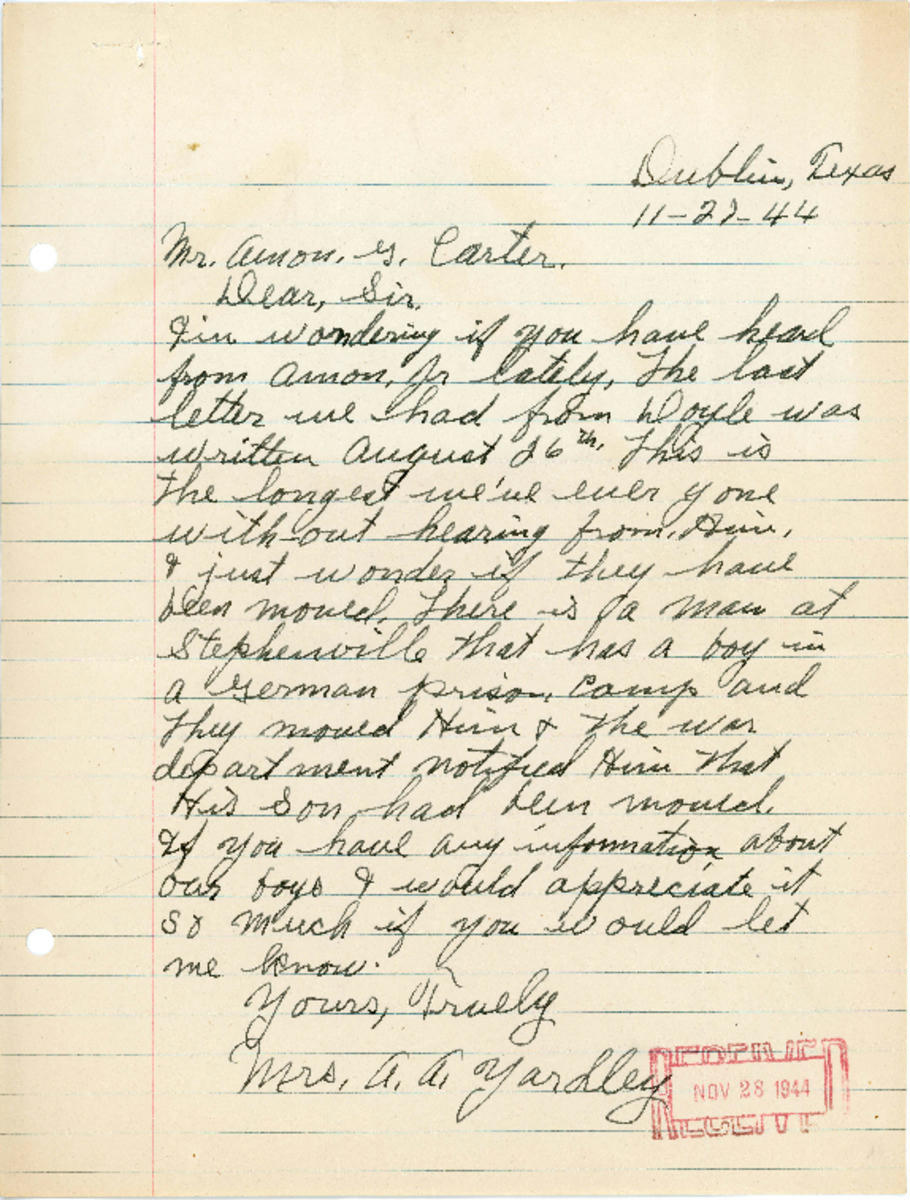 Dublin, Texas
11-27-44
Mr. Amon. G. Carter.
Dear, Sir.
I'm wondering if you have heard
from Amon, Jr lately. The last
letter we had from Doyle was
written August 26th. This is
the longest we've ever gone
with-out hearing from, Him,
I just wonder if they have
been moved. There is a man at
Stephenville that has a boy in
a German prison, Camp and
They moved Him & the war
department notified Him that
His Son had been moved.
If you have any information about
our boys I would appreciate it
so much if you would let
me know.
Yours, Truely
Mrs. A. A. Yardley
NOV 28 1944